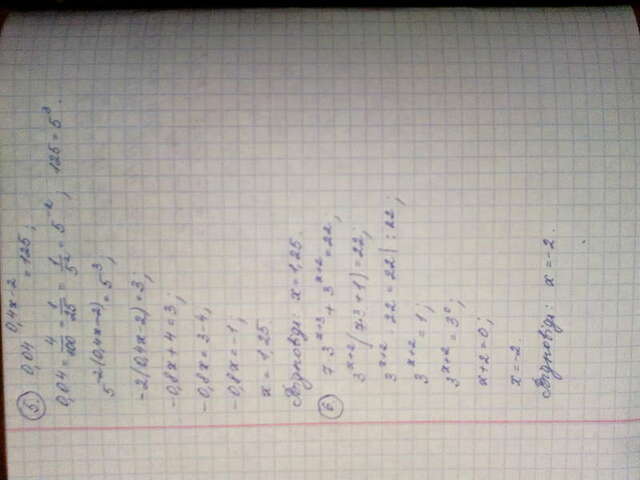 5. 0,04^{0,4x-2} = 125;
0,04 = 4/100 = 1/25 = 1/5² = 5^{-2}; 125 = 5³.
5^{-2(0,4x-2)} = 5³;
-2(0,4x-2) = 3;
-0,8x + 4 = 3;
-0,8x = 3-4;
-0,8x = -1;
x = 1,25
Відповідь: x = 1,25.
6. 7·3^{x+3} + 3^{x+2} = 22;
3^{x+2}(7·3+1) = 22;
3^{x+2} · 22 = 22 | : 22;
3^{x+2} = 1;
3^{x+2} = 3⁰;
x+2 = 0;
x = -2.
Відповідь: x = -2.